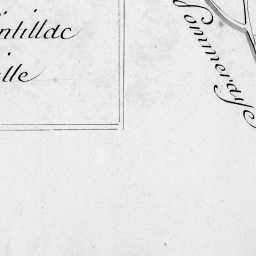 ntillac
lle
Sommerayse